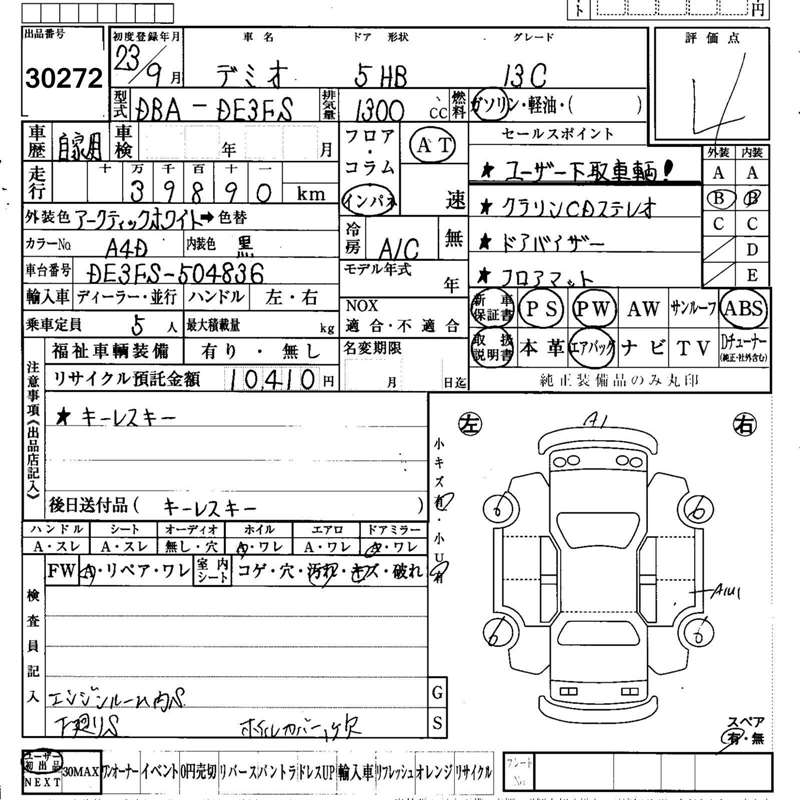 ト 円
出品番号 初度登録年月 車名 ドア 形状 グレード 評価点
30272 23/9月 デミオ 5HB 13C
型式 DBA-DE3FS 排気量 1300 CC 燃料 ガソリン・軽油・( )
車歴 自家用 車検 年 月 フロア・コラム AT セールスポイント 外装 内装
★ ユーザー下取車輌! A A
走行 十万千百十 39890 km インパネ 速 ★ クラリンCDステレオ B B
外装色 アークティックホワイト➡色替 冷房 A/C 無 ★ ドアバイザー C C
カラーNo. A4D 内装色 黒 D
車台番号 DE3FS-504836 モデル年式 年 ★ フロアマット E
輸入車 ディーラー・並行 ハンドル 左・右 NOX 適合・不適合 新車保証書 PS PW AW サンルーフ ABS
乗車定員 5人 最大積載量 kg 取扱説明書 本革 エアバッグ ナビ TV Dチューナー(純正・社外含む)
福祉車輌装備 有り・無し 名変期限 月 日迄 純正装備品のみ丸印
リサイクル預託金額 10,410円
注意事項《出品店記入》
★ キーレスキー
後日送付品( キーレスキー )
小キズ有・小U有
左 A1 右
ハンドル シート オーディオ ホイル エアロ ドアミラー
A・スレ A・スレ 無し・穴 A・ワレ A・ワレ A・ワレ
FW A・リペア・ワレ 室内シート コゲ・穴・汚れ・キズ・破れ
6 6
A1U1
6 6
検査員記入
エンジンルーム内S
下廻りS ホイルカバー1ケ欠
G
S
スペア
有・無
ユーザー初出品NEXT 30MAX ワンオーナー イベント 0円売切 リバース バントラ ドレスUP 輸入車 リフレッシュ オレンジ リサイクル
プレートNo.